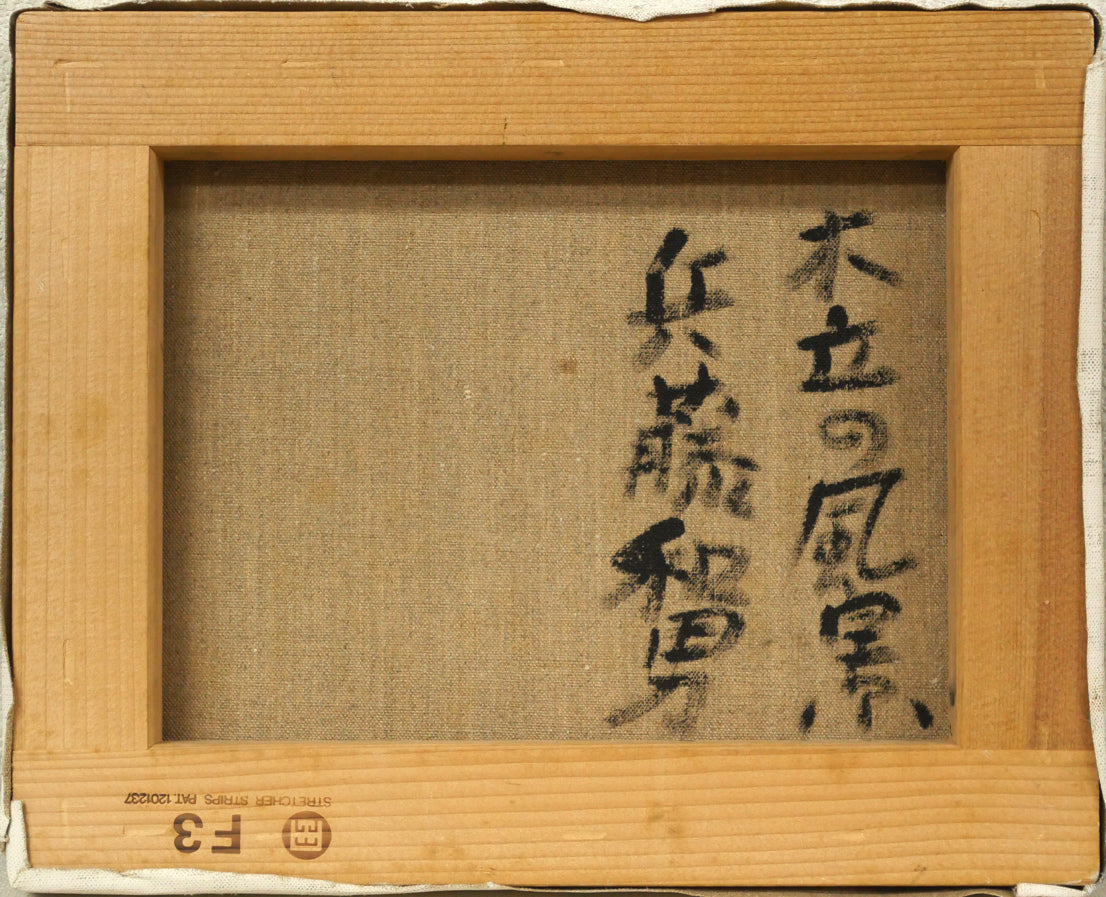 木立の風景
兵藤和男
STRETCHER STRIPS PAT. 1201237
F3